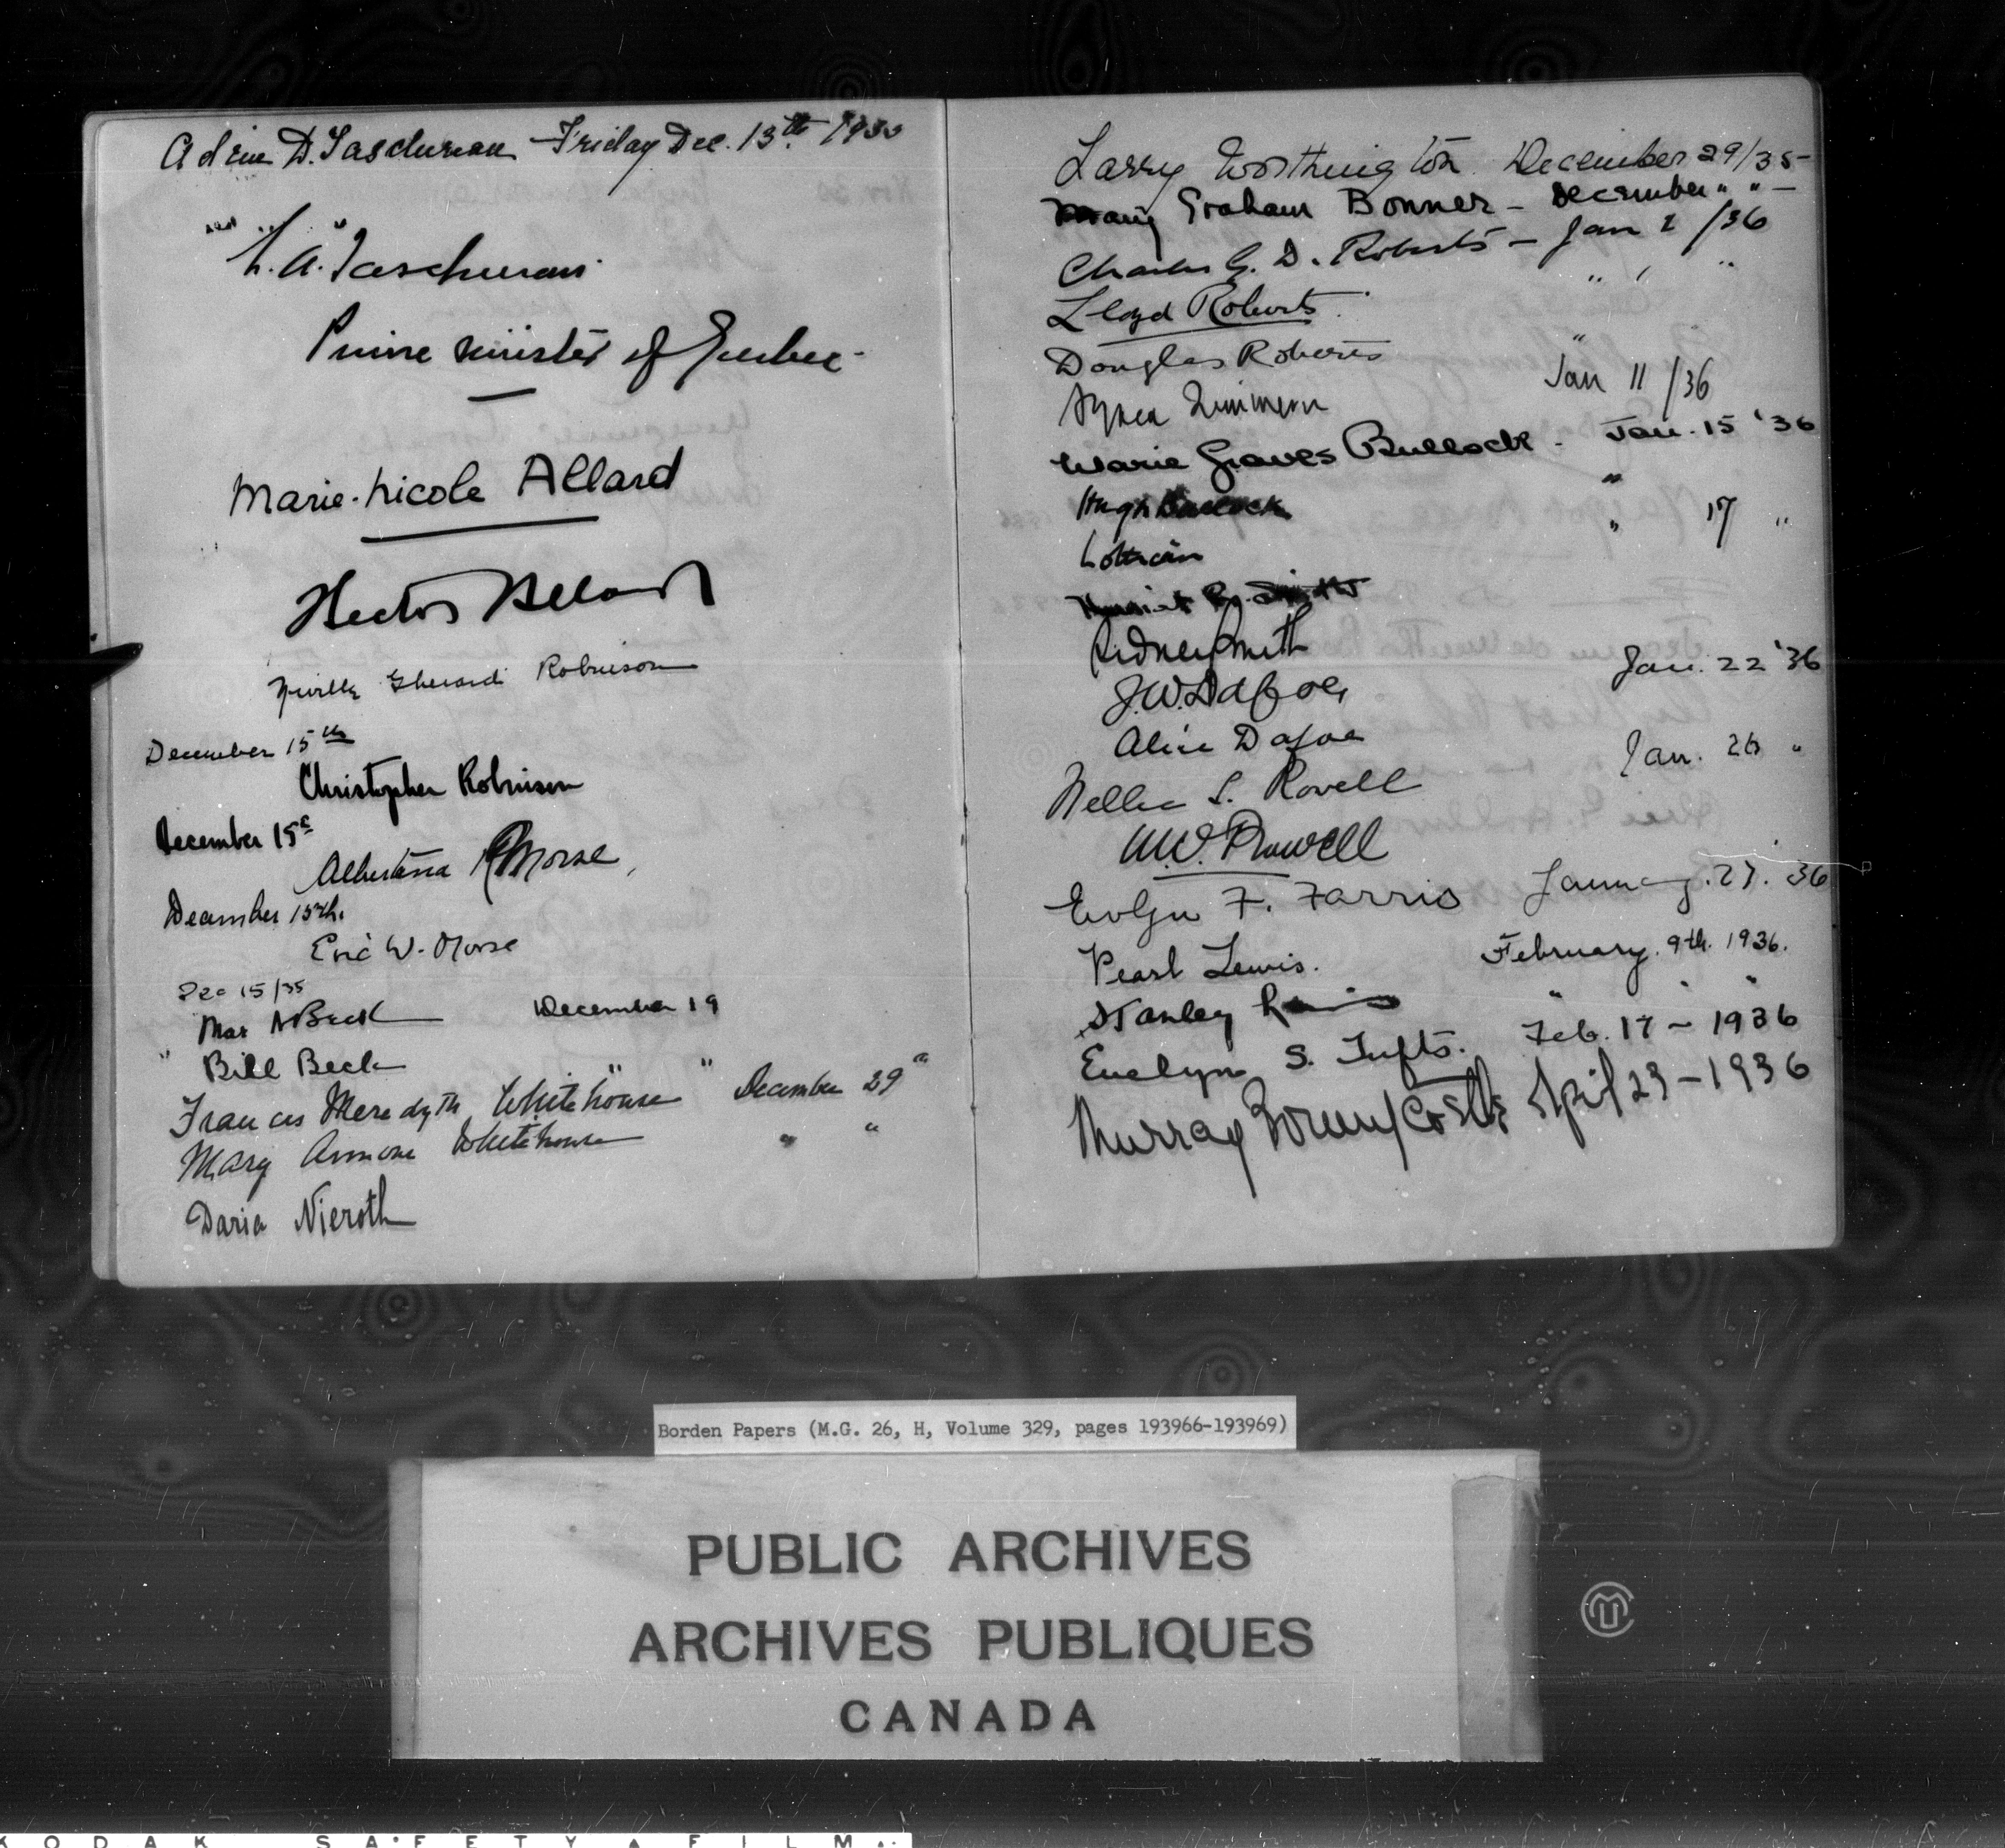 Adine D. Taschereau Friday Dec. 13th. 1935
L.A. Taschereau
Prime Minister of Quebec
Marie-Nicole Allard
Hector Allard
Robinson
December 15th
Christopher Robinson
December 15th
Albertina Morse
December 15th.
Eric W. Morse
Dec 15/35
Beck December 19
" Bill Beck " "
Frances Meredyth Whitehouse December 29"
Mary Whitehouse " "
Daria Nieroth
Larry Worthington. December 29/35-
Mary Graham Bonner - December " " -
Charles G. D. Roberts - Jan 1/36
Lloyd Roberts " " "
Douglas Roberts "
Zimmern Jan 11/36
Marie Graves Bullock - Jan. 15 '36
Hugh Bullock "
Lothian " 17 "
Harriet
Sidney Smith
J.W. Dafoe Jan. 22 '36
Alice Dafoe
Nellie L. Rowell Jan. 26 "
N.W. Rowell
Evlyn F. Farris January. 27. '36
Pearl Lewis. February. 9th. 1936.
Stanley Lewis " " "
Evelyn S. Tufts. Feb. 17 - 1936
Murray April 23 - 1936
Borden Papers (M.G. 26, H, Volume 329, pages 193966-193969)
PUBLIC ARCHIVES
ARCHIVES PUBLIQUES
CANADA
KODAK SAFETY FILM